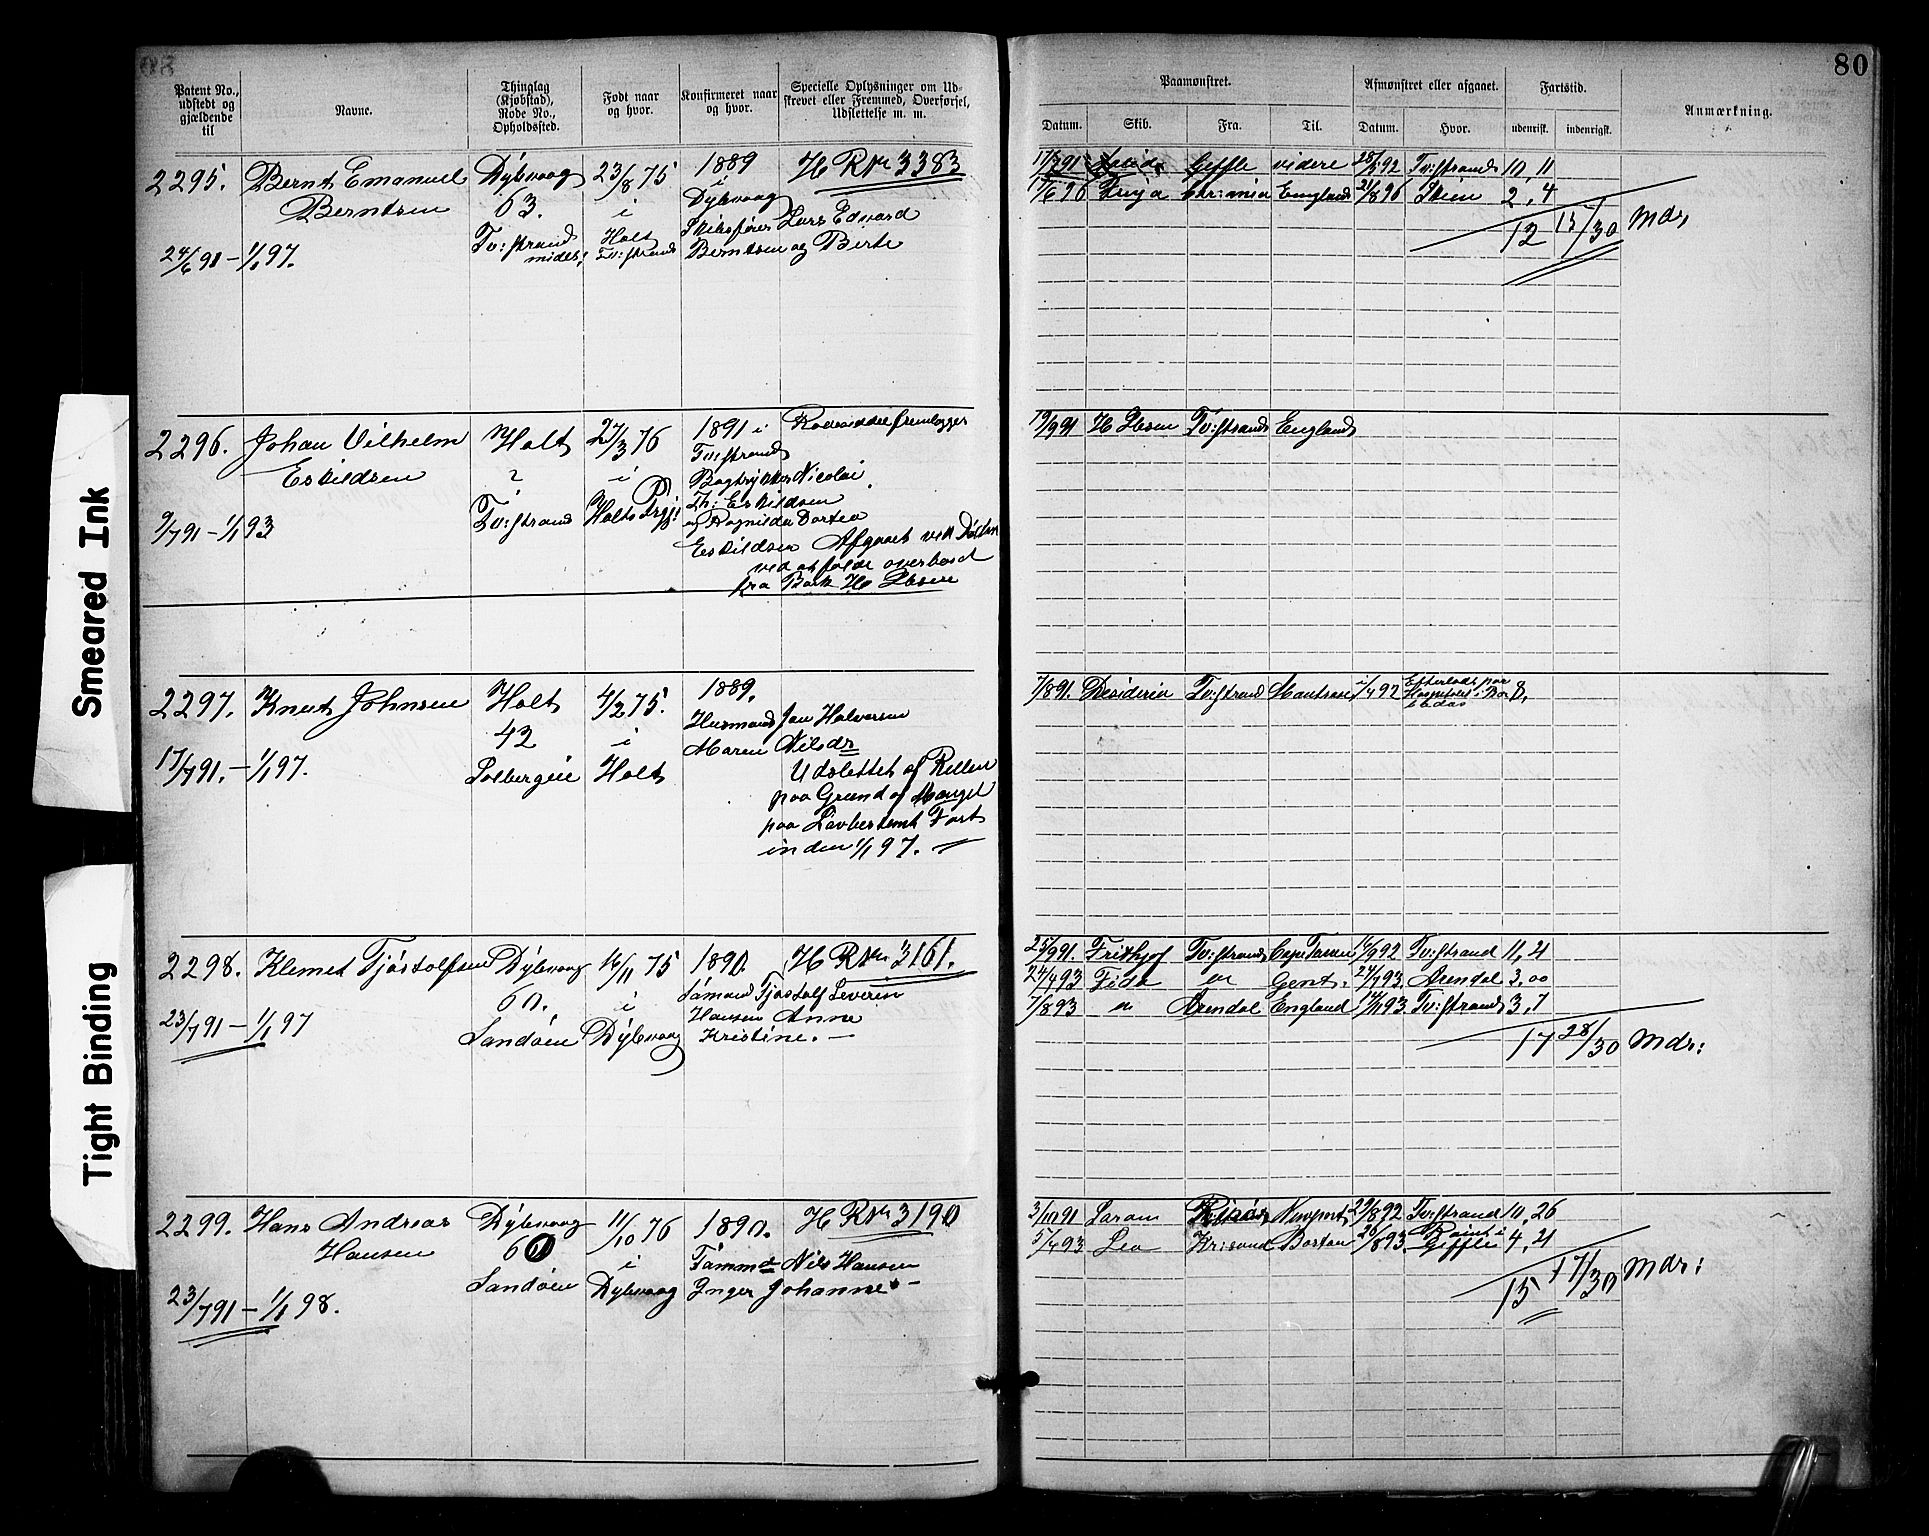 80
Patent No., udstedt og gjældende til
Navne.
Thinglag (Kjøbstad), Rode No., Opholdssted.
Født naar og hvor.
Konfirmeret naar og hvor.
Specielle Oplysninger om Udskrevet eller Fremmed, Overførsel, Udslettelse m. m.
Paamønstret.
Afmønstret eller afgaaet.
Fartstid.
Anmærkning.
Datum.
Skib.
Fra.
Til.
Datum.
Hvor.
udenrisk.
indenrigsk.
2295. Bernt Emanuel Dybvaag 23/8 75 1889 H R No 3383
Berntsen 63. i i Dybvaag
Tv:strand Holt Skibsfører Lars Edvard
24/6 91 – 1/1 97. Tv:strand Berntsen og Birte
Gefle videre 28/5 92 Tv:strand 10, 11
Freya Chr:ania England 21/8 96 Skien 2, 4
12 15/30 Mdr
2296. Johan Vilhelm Holt 27/3 76 1891 i
Eskildsen ? i Tv:strand
Bogtrykker Nicolai
9/7 91 – 1/1 93 Tv:strand Holts Prgj: Th: Eskildsen
og Ragnilda Dortea
Eskildsen Afgaaet ved Døden
ved at falde overbord
fra Bark H Ibsen
19/9 91 H Ibsen Tv:strand England
2297. Knut Johnsen Holt 4/2 75. 1889.
42 i Husmand Jan Halvorsen
Maren Nilsdr
17/7 91. – 1/1 97. Solbergeie Holt Udslettet af Rullen
paa Grund af Mangel
paa Lovbestemt Fart
inden 1/1 97. –
7/8 91. Desideria Tv:strand 1/4 92 Efterladt paa Hospitalet i 8,
2298. Klemet Tjøstolfsen Dybvaag 16/11 75 1890. H R No 3161.
60. i Sømand Tjøstolf Severin
Hansen Anne
23/7 91 – 1/1 97 Sandøen Dybvaag Kristine. –
25/9 91. Frithjof Tv:strand 16/9 92 Tv:strand 11, 21
24/4 93 Fido Gent. 24/7 93. Arendal 3,00
7/8 93 Arendal England 14/11 93. Tv:strand 3, 7
17 28/30 Mdr:
2299. Hans Andreas Dybvaag 11/10 76 1890. H R No 3190
Hansen 60 i Tømmd Nils Hansen
Sandøen Dybvaag Inger Johanne –
23/7 91 – 1/1 98.
3/10 91 Risør Newport 29/8 92 Tv:strand 10, 26
5/4 93 Leo Kr:sand Boston 26/8 93. Gefle 4, 21
15 17/30 Mdr:
Smeared Ink
Tight Binding